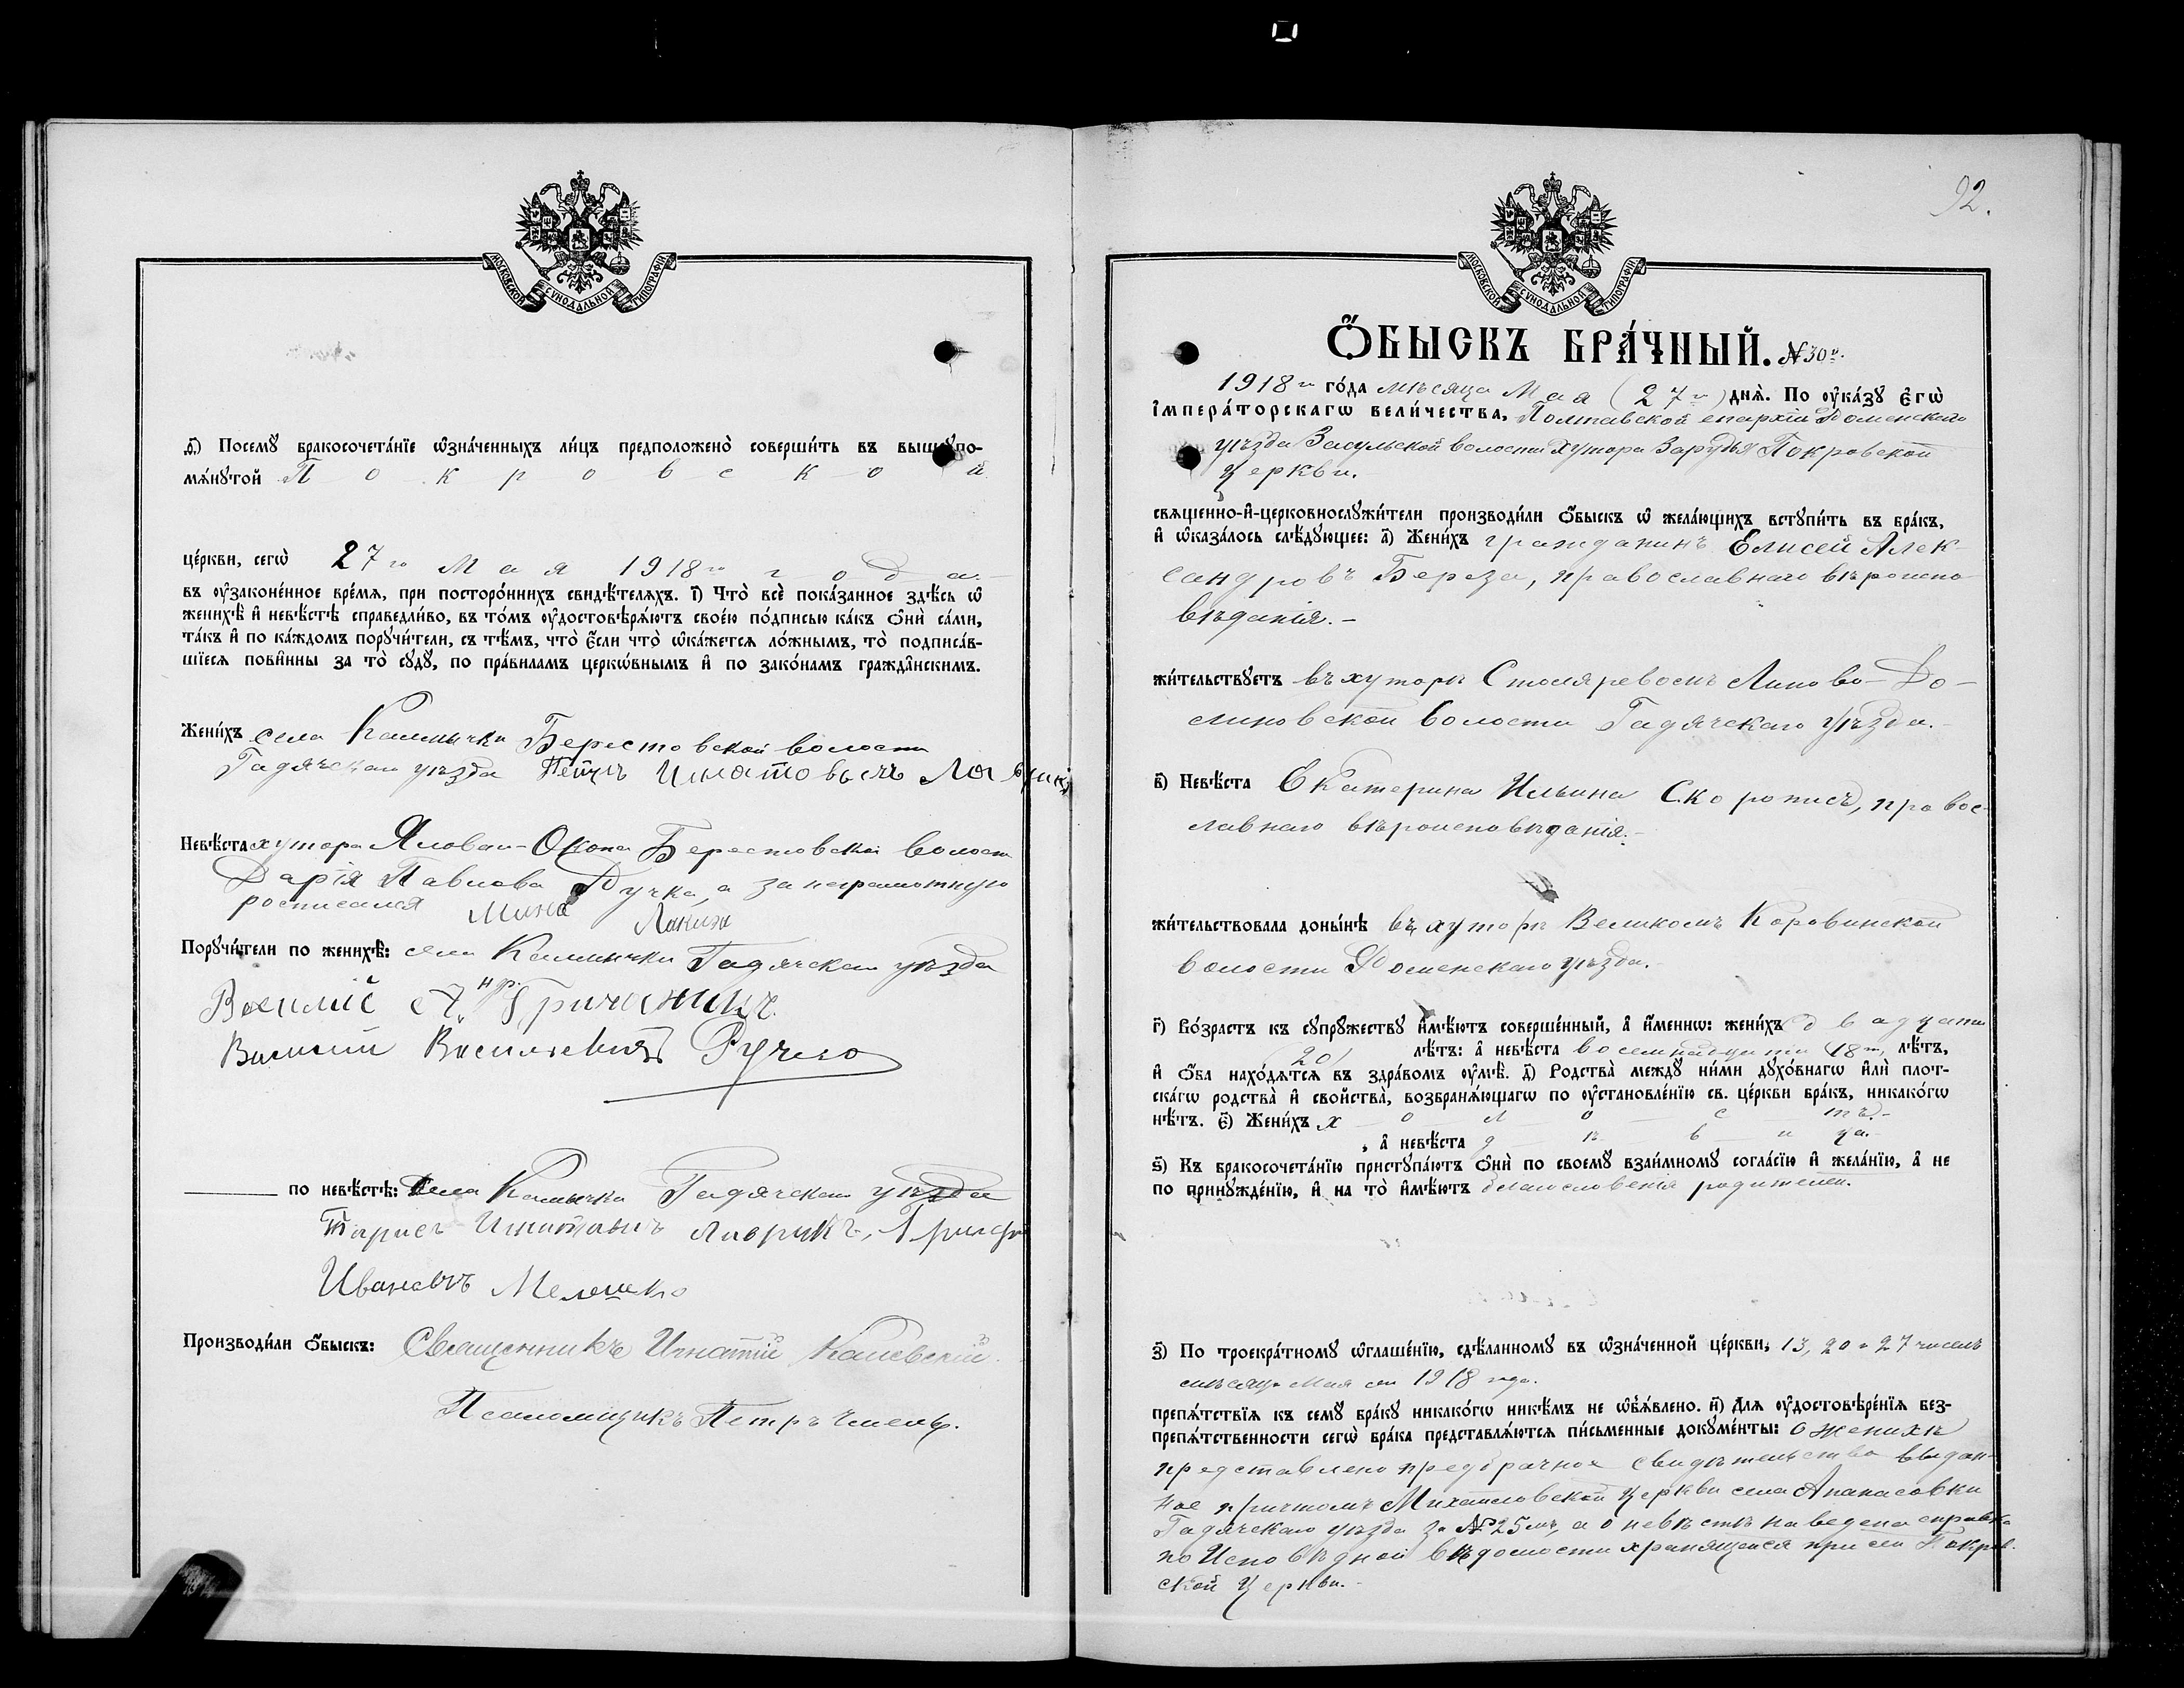 МОСКОВСКОЙ СѴНОДАЛЬНОЙ ТИПОГРАФІИ
ѳ҃) Посемꙋ̀ бракосочета́нїе ѡ҆зна́ченныхъ ли́цъ предположено̀ соверши́ть въ вышеꙋпо-
мѧ́нꙋтой Покровской
це́ркви, сегѡ̀ 27го Мая 1918го года.
въ ᲂу҆зако́нённое вре́мѧ, при посторо́ннихъ свидѣ́телѧхъ. і҃) Что̀ всѐ пока́занное здѣ́сь ѡ҆
женихѣ̀ и҆ невѣ́стѣ справедли́во, въ то́мъ ᲂу҆достовѣрѧ́ютъ свое́ю по́дписью ка́къ ѻ҆нѝ са́ми,
та́къ и҆ по ка́ждомъ порꙋчи́тели, съ тѣ́мъ, что̀ є҆́сли что̀ ѡ҆ка́жетсѧ ло́жнымъ, то̀ подписа́в-
шїесѧ пови́нны за то̀ сꙋдꙋ̀, по пра́виламъ церко́внымъ и҆ по зако́намъ гражда́нскимъ.
Жени́хъ села Камычки Берестовской волости
Гадячскаго уѣзда Петръ Игнатовычъ Лаврикъ
Невѣ́ста хутора Ялован-Окопа Берестовской волости
Дарія Павлова Ручка, а за неграмотную
росписался Мина Лакиза
Порꙋчи́тели по женихѣ̀: села Камычки Гадячскаго уѣзда
Василий Андр. Гричаникъ.
Василий Васильевичъ Ручко
по невѣ́стѣ: Села Камычка Гадячскаго уѣзда
Борисъ Игнатовичъ Лаврикъ,
Ивановичъ Мелешко
Производи́ли ѻ҆́быскъ: Священникъ Игнатій Каневскій.
Псаломщикъ Петръ
92.
МОСКОВСКОЙ СѴНОДАЛЬНОЙ ТИПОГРАФІИ
Ѻ҆́БЫСКЪ БРА́ЧНЫЙ. №30й.
1918го го́да мѣсяца Мая (27го) днѧ̀. По ᲂу҆ка́зꙋ Є҆гѡ̀
І҆мпера́торскагѡ вели́чества, Полтавской епархіи Роменскаго
уѣзда Засульской волости хутора Зарудья Покровской
церкви.
свѧще́нно-и҆-церковнослꙋжи́тели производи́ли ѻ҆́быскъ ѡ҆ жела́ющихъ встꙋпи́ть въ бра́къ,
и҆ ѡ҆каза́лось слѣ́дꙋющее: а҃) Жени́хъ гражданинъ Елисей Алек-
сандровъ Береза, православнаго вѣроиспо-
вѣданія.-
жи́тельствꙋетъ въ хуторѣ Столяревомъ Липово-До-
линовской волости Гадячскаго уѣзда.-
в҃) Невѣ́ста Екатерина Ильина Скоропись, правос-
лавнаго вѣроисповѣданія.-
жи́тельствовала доны́нѣ въ хуторѣ Великомъ Коровинской
волости Роменскаго уѣзда.-
г҃) Во́зрастъ къ сꙋпрꙋ́жествꙋ и҆мѣ́ютъ соверше́нный, а҆ и҆́меннѡ: жени́хъ двадцати
20 лѣ́тъ: а҆ невѣ́ста восемнадцати 18ти лѣ́тъ,
и҆ ѻ҆́ба нахо́дѧтсѧ въ здра́вомъ ᲂу҆мѣ̀. д҃) Родства̀ междꙋ̀ ни́ми дꙋхо́внагѡ и҆лѝ плот-
ска́гѡ родства̀ и҆ свойства̀, возбранѧ́ющагѡ по ᲂу҆становле́нїю св. це́ркви бра́къ, никако́гѡ
нѣ́тъ. є҃) Жени́хъ холостъ.-
, а҆ невѣ́ста дѣвица.-
ѕ҃) Къ бракосочета́нїю пристꙋпа́ютъ ѻ҆нѝ по своемꙋ̀ взаи́мномꙋ согла́сїю и҆ жела́нїю, а҆ не
по принꙋжде́нїю, и҆ на то̀ и҆мѣ́ютъ благословенія родителей.
з҃) По троекра́тномꙋ ѡ҆глаше́нїю, сдѣ́ланномꙋ въ ѡ҆зна́ченной це́ркви, 13, 20 и 27 чиселъ
мѣсяца Мая 1918 года.
препѧ́тствїѧ къ семꙋ̀ бра́кꙋ никако́гѡ никѣ́мъ не ѡ҆б̾ѧ́влено. и҃) Длѧ ᲂу҆достовѣре́нїѧ без-
препѧ́тственности сегѡ̀ бра́ка представлѧ́ютсѧ пи́сьменные докꙋме́нты: о женихѣ
представлено предбрачное свидѣтельство выдан-
ное причтомъ Михайловской церкви села Апанасовки
Гадячскаго уѣзда за №25мъ, а о невѣстѣ наведена справка
по Исповѣдной вѣдомости хранящейся при сей Покров-
ской церкви.-